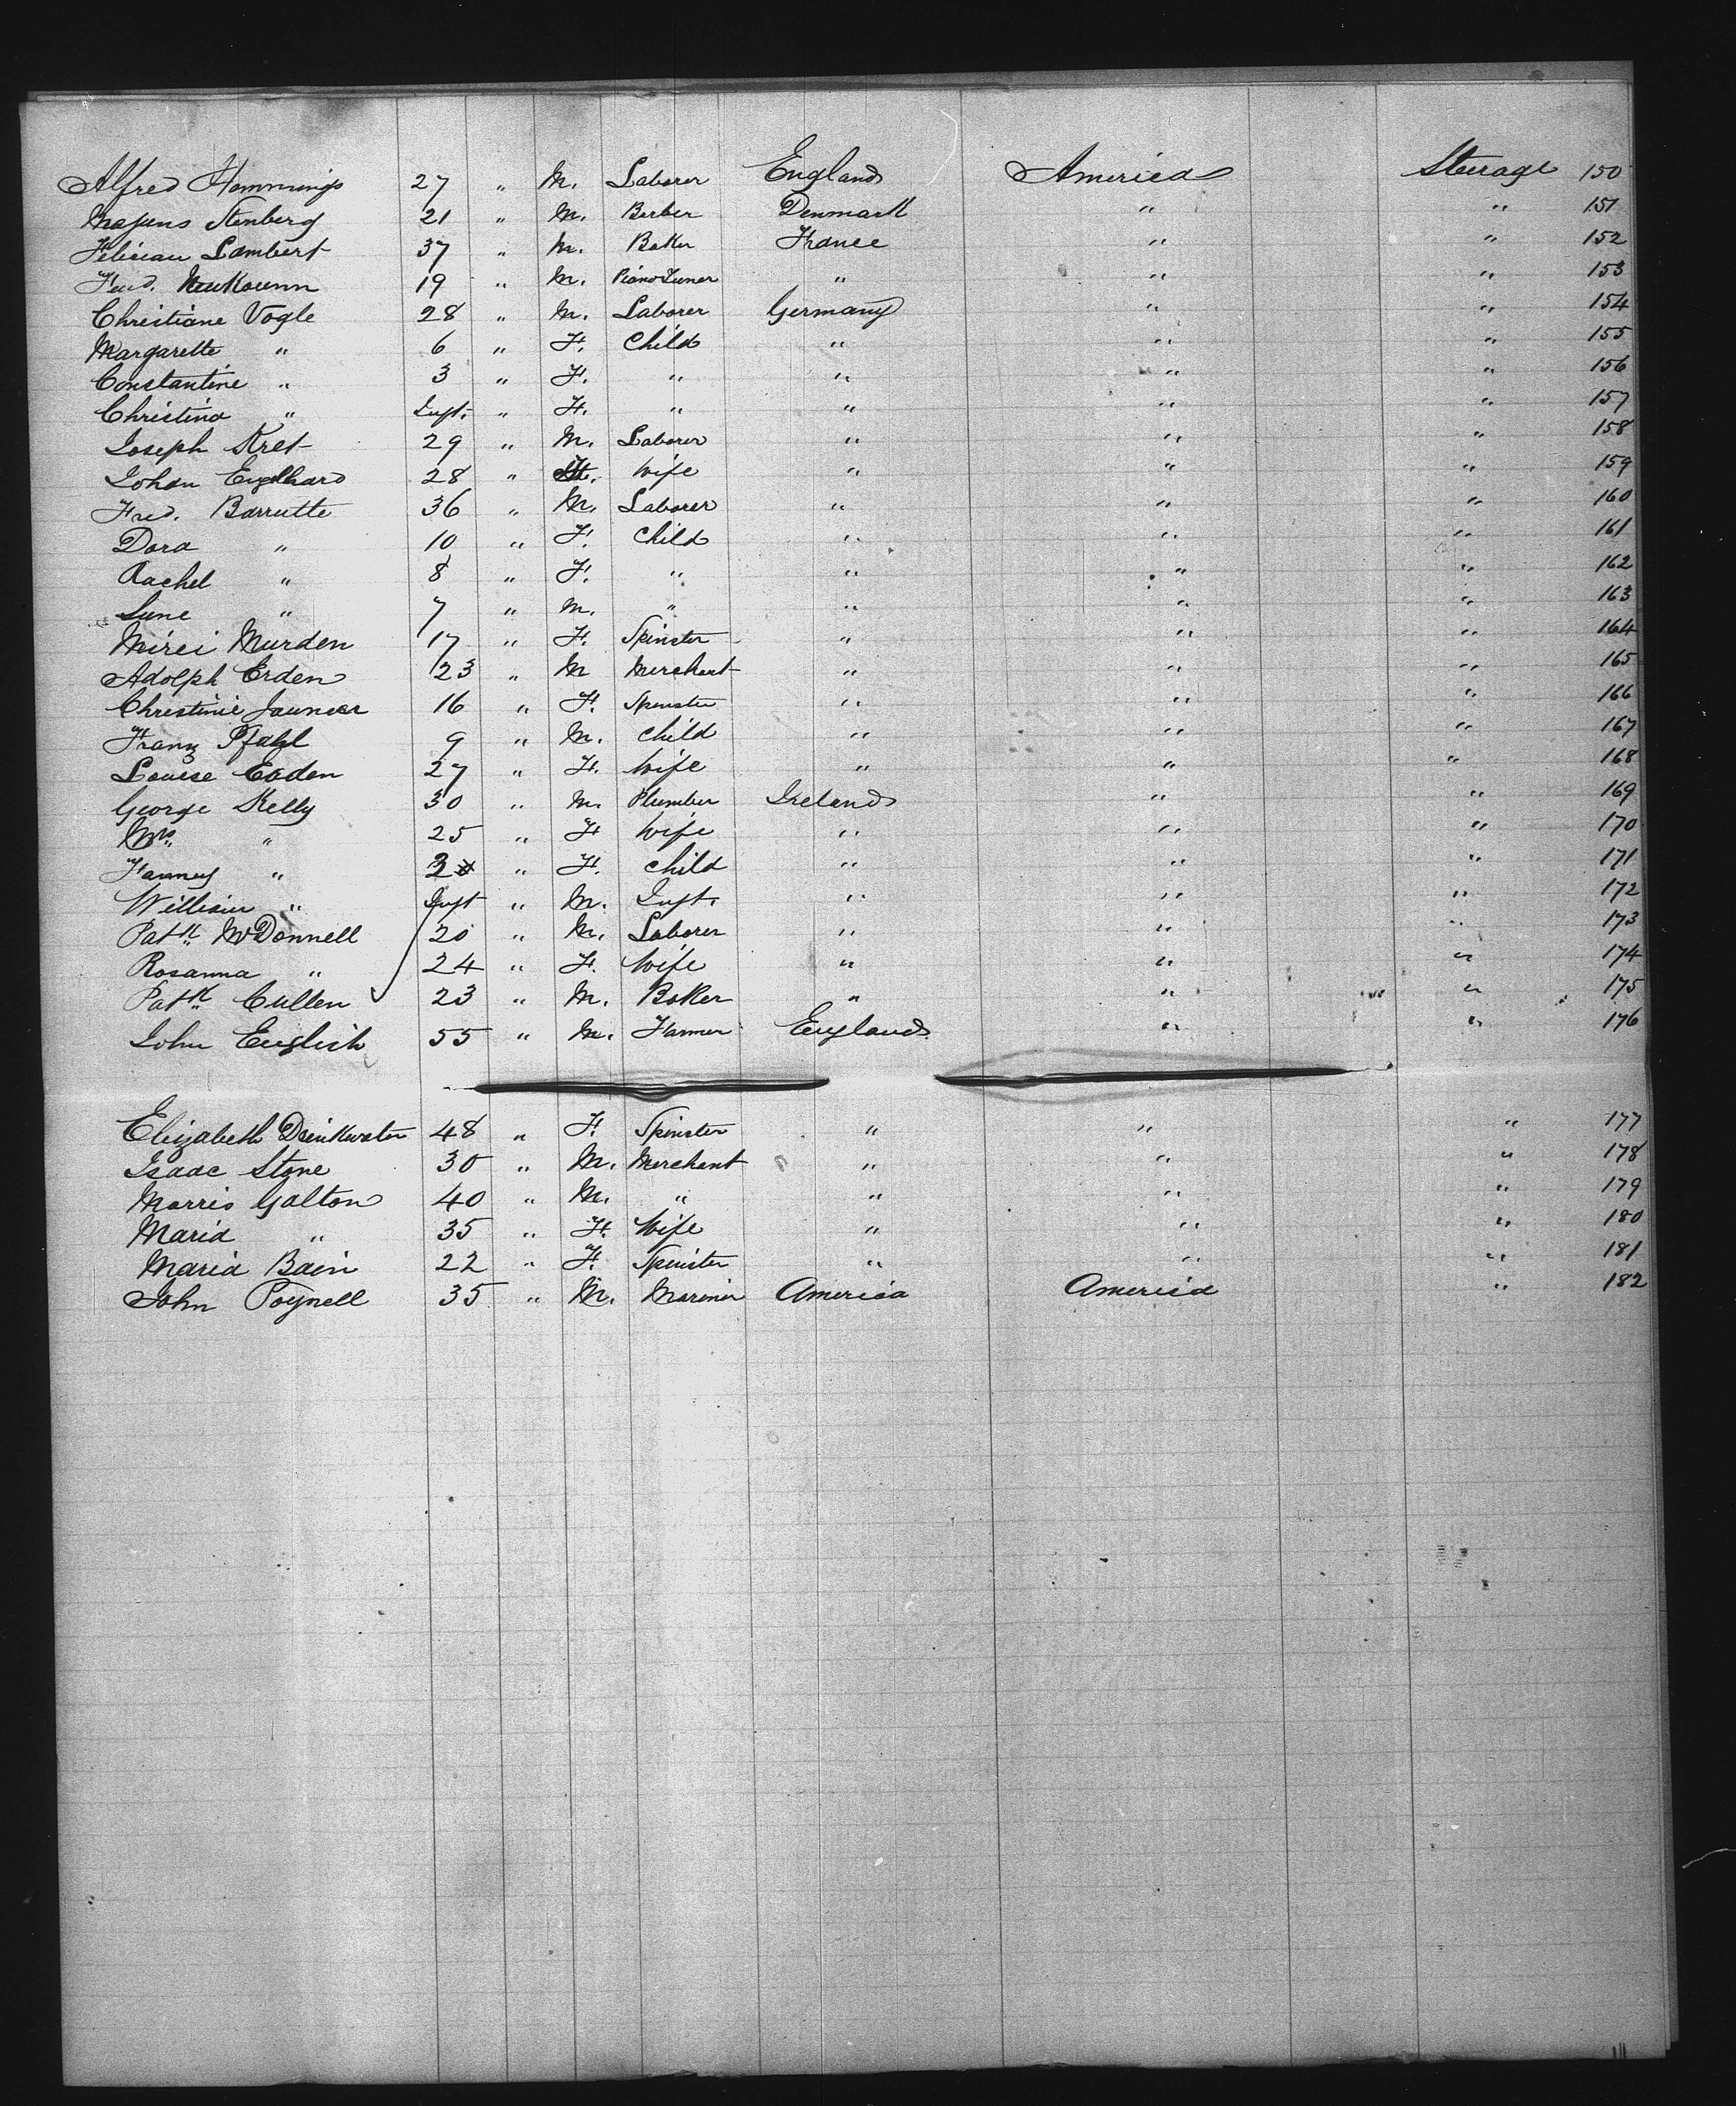 Alfred Hemmings 27 " M. Laborer England America Steerage 150
Mogens Stenberg 21 " M. Barber Denmark " " 151
Felician Lambert 37 " M. Baker France " " 152
Fred. 19 " M. Piano Tuner " " " 153
Christiane Vogle 28 " M. Laborer Germany " " 154
Margarette " 6 " F. Child " " " 155
Constantine " 3 " F. " " " " 156
Christina " Inft. " F. " " " " 157
Joseph Kret 29 " M. Laborer " " " 158
Johan Englhard 28 " F. Wife " " " 159
Fred. Barrutte 36 " M. Laborer " " " 160
Dora " 10 " F. Child " " " 161
Rachel " 8 " F. " " " " 162
June " 7 " M. " " " " 163
Mirei Murden 17 " F. Spinster " " " 164
Adolph Erden 23 " M Merchant " " " 165
Christinie 16 " F. Spinster " " " 166
Franz Pfahl 9 " M. Child " " " 167
Louise Eaden 27 " F. Wife " " " 168
George Kelly 30 " M. Plumber Ireland " " 169
Mrs " 25 " F Wife " " " 170
Fanny " 2 " F. Child " " " 171
William " Inft " M. Inft. " " " 172
Patk. McDonnell 20 " M. Laborer " " " 173
Rosanna " 24 " F. Wife " " " 174
Patk. Cullen 23 " M. Baker " " " 175
John English 55 " M. Farmer England " " 176
Elizabeth Drinkwater 48 " F. Spinster " " " 177
Isaac Stone 30 " M. Merchant " " " 178
Morris Galton 40 " M. " " " " 179
Maria " 35 " F. Wife " " " 180
Maria Bain 22 " F. Spinster " " " 181
John Poynell 35 " M. Mariner America America " 182